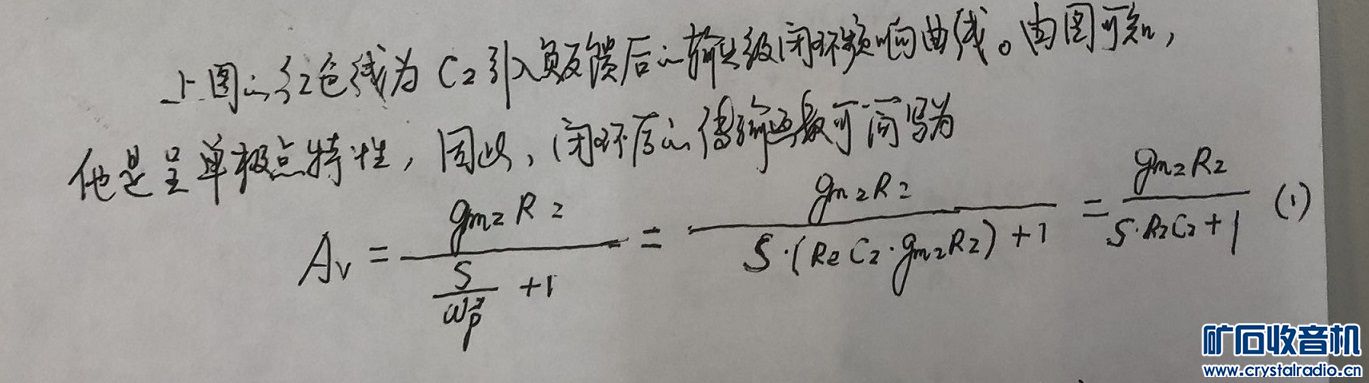 上图的红色线为C2引入负反馈后的输出级闭环频响曲线。由图可知，
他是呈单极点特性，因此，闭环后的传输函数可简写为
Av = gm2R2 / (S/ωp + 1) = gm2R2 / (S·(ReC2·gm2R2)+1) = gm2R2 / (S·R2C2+1) (1)
矿石收音机
www.crystalradio.cn